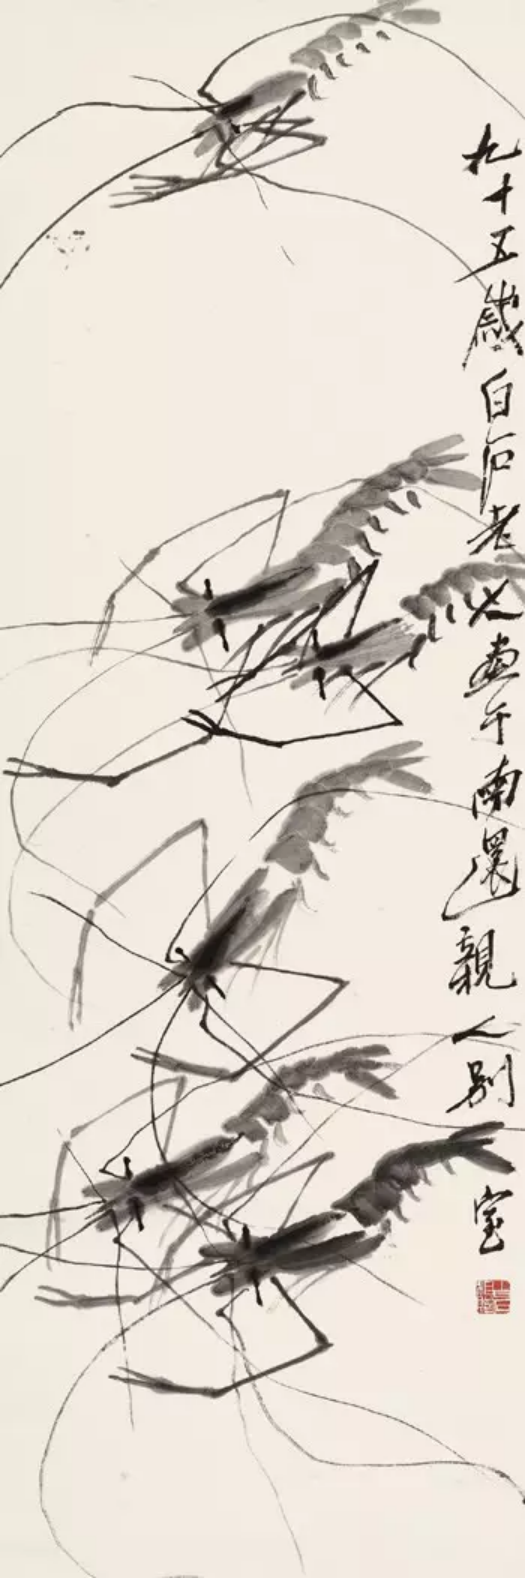 九十五歲白石老畫于南還親人別室